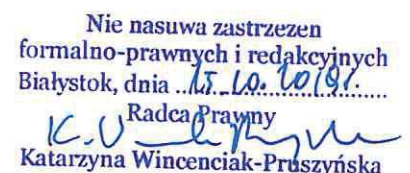 Nie nasuwa zastrzezen
formalno-prawnych i redakcyjnych
Białystok, dnia 15.10.2019r.
Radca Prawny
Katarzyna Wincenciak-Pruszyńska